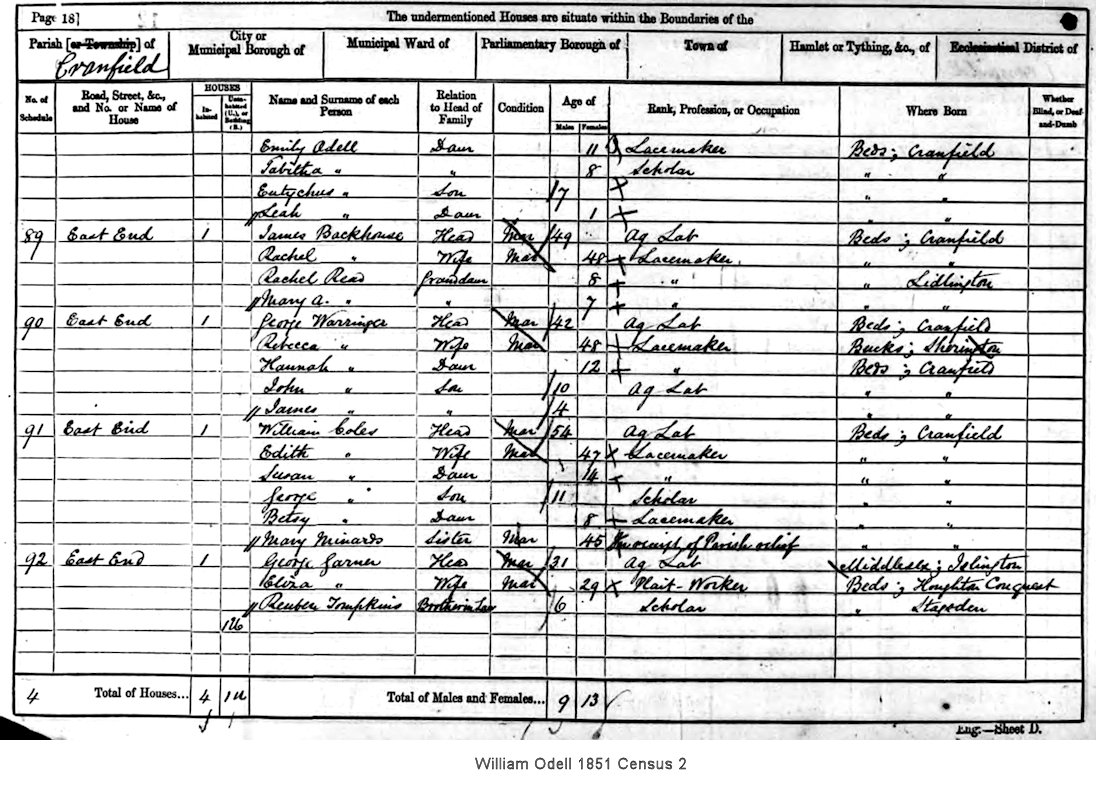 Page 18]
The undermentioned Houses are situate within the Boundaries of the
Parish [or Township] of Cranfield
City or Municipal Borough of
Municipal Ward of
Parliamentary Borough of
Town of
Hamlet or Tything, &c., of
Ecclesiastical District of
No. of Schedule
Road, Street, &c., and No. or Name of House
HOUSES
Inhabited
Uninhabited (U.), or Building (B.)
Name and Surname of each Person
Relation to Head of Family
Condition
Age of
Males
Females
Rank, Profession, or Occupation
Where Born
Whether Blind, or Deaf-and-Dumb
Emily Odell Daur 11 Lacemaker Beds; Cranfield
Tabitha " " 8 Scholar " "
Eutychus " Son 7 " "
Leah " Daur 1 " "
89 East End 1 James Backhouse Head Mar 49 Ag Lab Beds; Cranfield
Rachel " Wife Mar 48 Lacemaker " "
Rachel Read Grandaur 8 " " Lidlington
Mary A. " " 7 " " "
90 East End 1 George Warringer Head Mar 42 Ag Lab Beds; Cranfield
Rebecca " Wife Mar 48 Lacemaker Bucks; Sherington
Hannah " Daur 12 " Beds; Cranfield
John " Son 10 Ag Lab " "
James " " 4 " "
91 East End 1 William Coles Head Mar 54 Ag Lab Beds; Cranfield
Edith " Wife Mar 47 Lacemaker " "
Susan " Daur 14 " " "
George " Son 11 Scholar " "
Betsy " Daur 8 Lacemaker " "
Mary Minards Sister Mar 45 In receipt of Parish relief " "
92 East End 1 George Garner Head Mar 31 Ag Lab Middlesex; Islington
Eliza " Wife Mar 29 Plait-Worker Beds; Houghton Conquest
Reuben Tompkins Brotherinlaw 6 Scholar " Stagsden
1U
4 Total of Houses... 4 1U Total of Males and Females... 9 13
Eng.—Sheet D.
William Odell 1851 Census 2